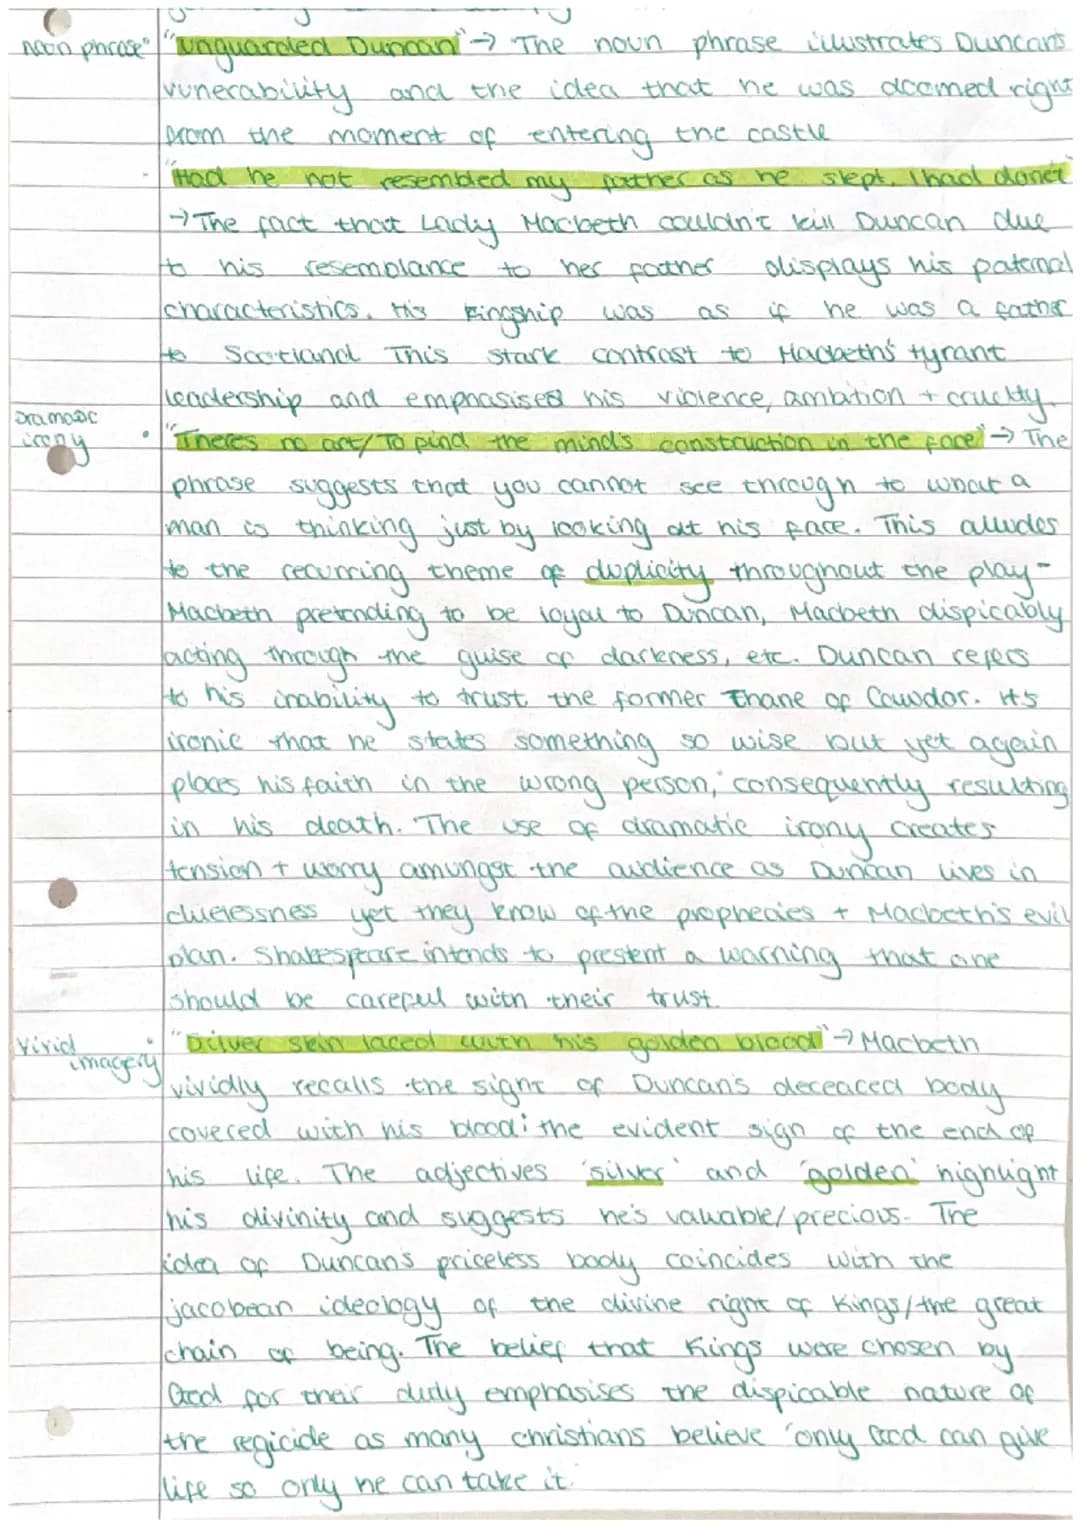 noun phrase "Unguarded Duncan" → The noun phrase illustrates Duncan's
vunerability and the idea that he was doomed right
from the moment of entering the castle
"Had he not resembled my father as he slept, I had done't"
→ The fact that Lady Macbeth couldn't kill Duncan due
to his resemblance to her father displays his paternal
characteristics. His kingship was as if he was a father
to Scotland This stark contrast to Macbeth's tyrant
leadership and emphasises his violence, ambition + cruelty.
Dramatic
irony • "There's no art/ To find the mind's construction in the face" → The
phrase suggests that you cannot see through to what a
man is thinking just by looking at his face. This alludes
to the recurring theme of duplicity throughout the play-
Macbeth pretending to be loyal to Duncan, Macbeth dispicably
acting through the guise of darkness, etc. Duncan refers
to his inability to trust the former Thane of Cawdor. It's
ironic that he states something so wise but yet again
places his faith in the wrong person, consequently resulting
in his death. The use of dramatic irony creates
tension + worry amungst the audience as Duncan lives in
cluelessness yet they know of the prophecies + Macbeth's evil
plan. Shakespeare intends to present a warning that one
should be careful with their trust.
Vivid
imagery • "Silver skin laced with his golden blood" → Macbeth
vividly recalls the sight of Duncan's deceaced body
covered with his blood: the evident sign of the end of
his life. The adjectives 'silver' and 'golden' highlight
his divinity and suggests he's valuable/precious. The
idea of Duncan's priceless body coincides with the
jacobean ideology of the divine right of Kings/the great
chain of being. The belief that Kings were chosen by
God for their duty emphasises the dispicable nature of
the regicide as many christians believe 'only God can give
life so only he can take it.'